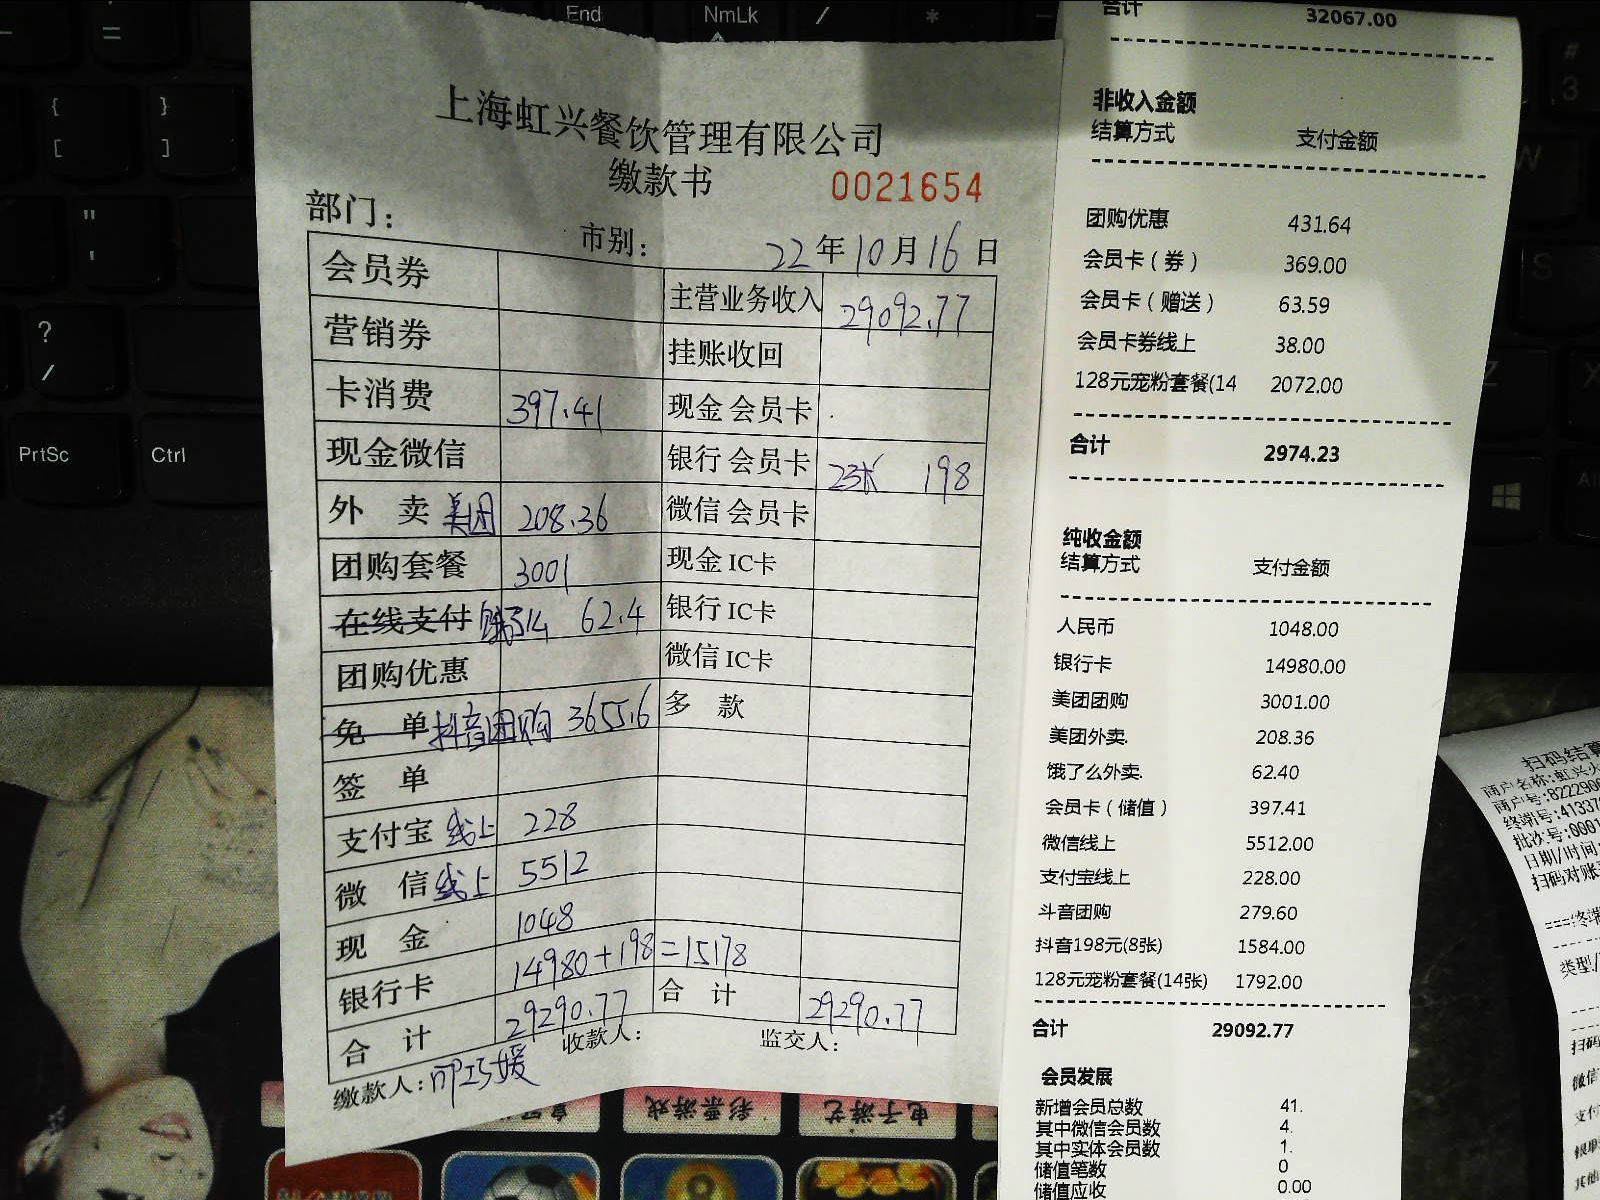 End
NmLk
/
*
-
=
{
[
}
]
"
'
?
/
PrtSc
Ctrl
#
3
W
S
Z
X
上海虹兴餐饮管理有限公司
缴款书
0021654
部门:
市别:
22年10月16日
会员券
主营业务收入 29092.77
营销券
挂账收回
卡消费 397.41
现金会员卡
现金微信
银行会员卡 23张 198
外 卖 美团 208.36
微信会员卡
团购套餐 3001
现金IC卡
在线支付 饿了么 62.4
银行IC卡
团购优惠
微信IC卡
免 单 抖音团购 3655.6
多 款
签 单
支付宝 线上 228
微 信 线上 5512
现 金 1048
银行卡 14980+198=15178
合 计 29290.77
合 计 29290.77
收款人:
监交人:
缴款人:
彩票游戏
电子游艺
合计 32067.00
非收入金额
结算方式 支付金额
团购优惠 431.64
会员卡(券) 369.00
会员卡(赠送) 63.59
会员卡券线上 38.00
128元宠粉套餐(14 2072.00
合计 2974.23
纯收金额
结算方式 支付金额
人民币 1048.00
银行卡 14980.00
美团团购 3001.00
美团外卖. 208.36
饿了么外卖. 62.40
会员卡(储值) 397.41
微信线上 5512.00
支付宝线上 228.00
斗音团购 279.60
抖音198元(8张) 1584.00
128元宠粉套餐(14张) 1792.00
合计 29092.77
会员发展
新增会员总数 41.
其中微信会员数 4.
其中实体会员数 1.
储值笔数 0
储值应收 0.00
扫码结算
商户名称:虹兴火
商户号:8222900
终端号:41337
批次号:0001
日期/时间:
扫码对账
===终端
类型/
扫码
微信
支付
银联
其他